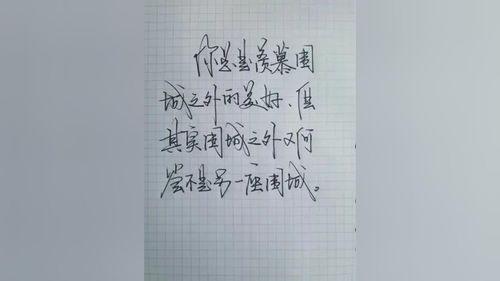 你总是羡慕围
城之外的美好、但
其实围城之外又何
尝不是另一座围城。